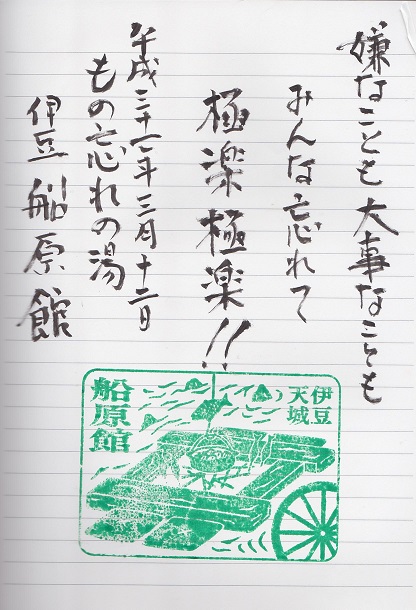 嫌なことも大事なことも
みんな忘れて
極楽極楽!!
平成二十七年三月十二日
もの忘れの湯
伊豆 船原館
伊豆
天城
船原館